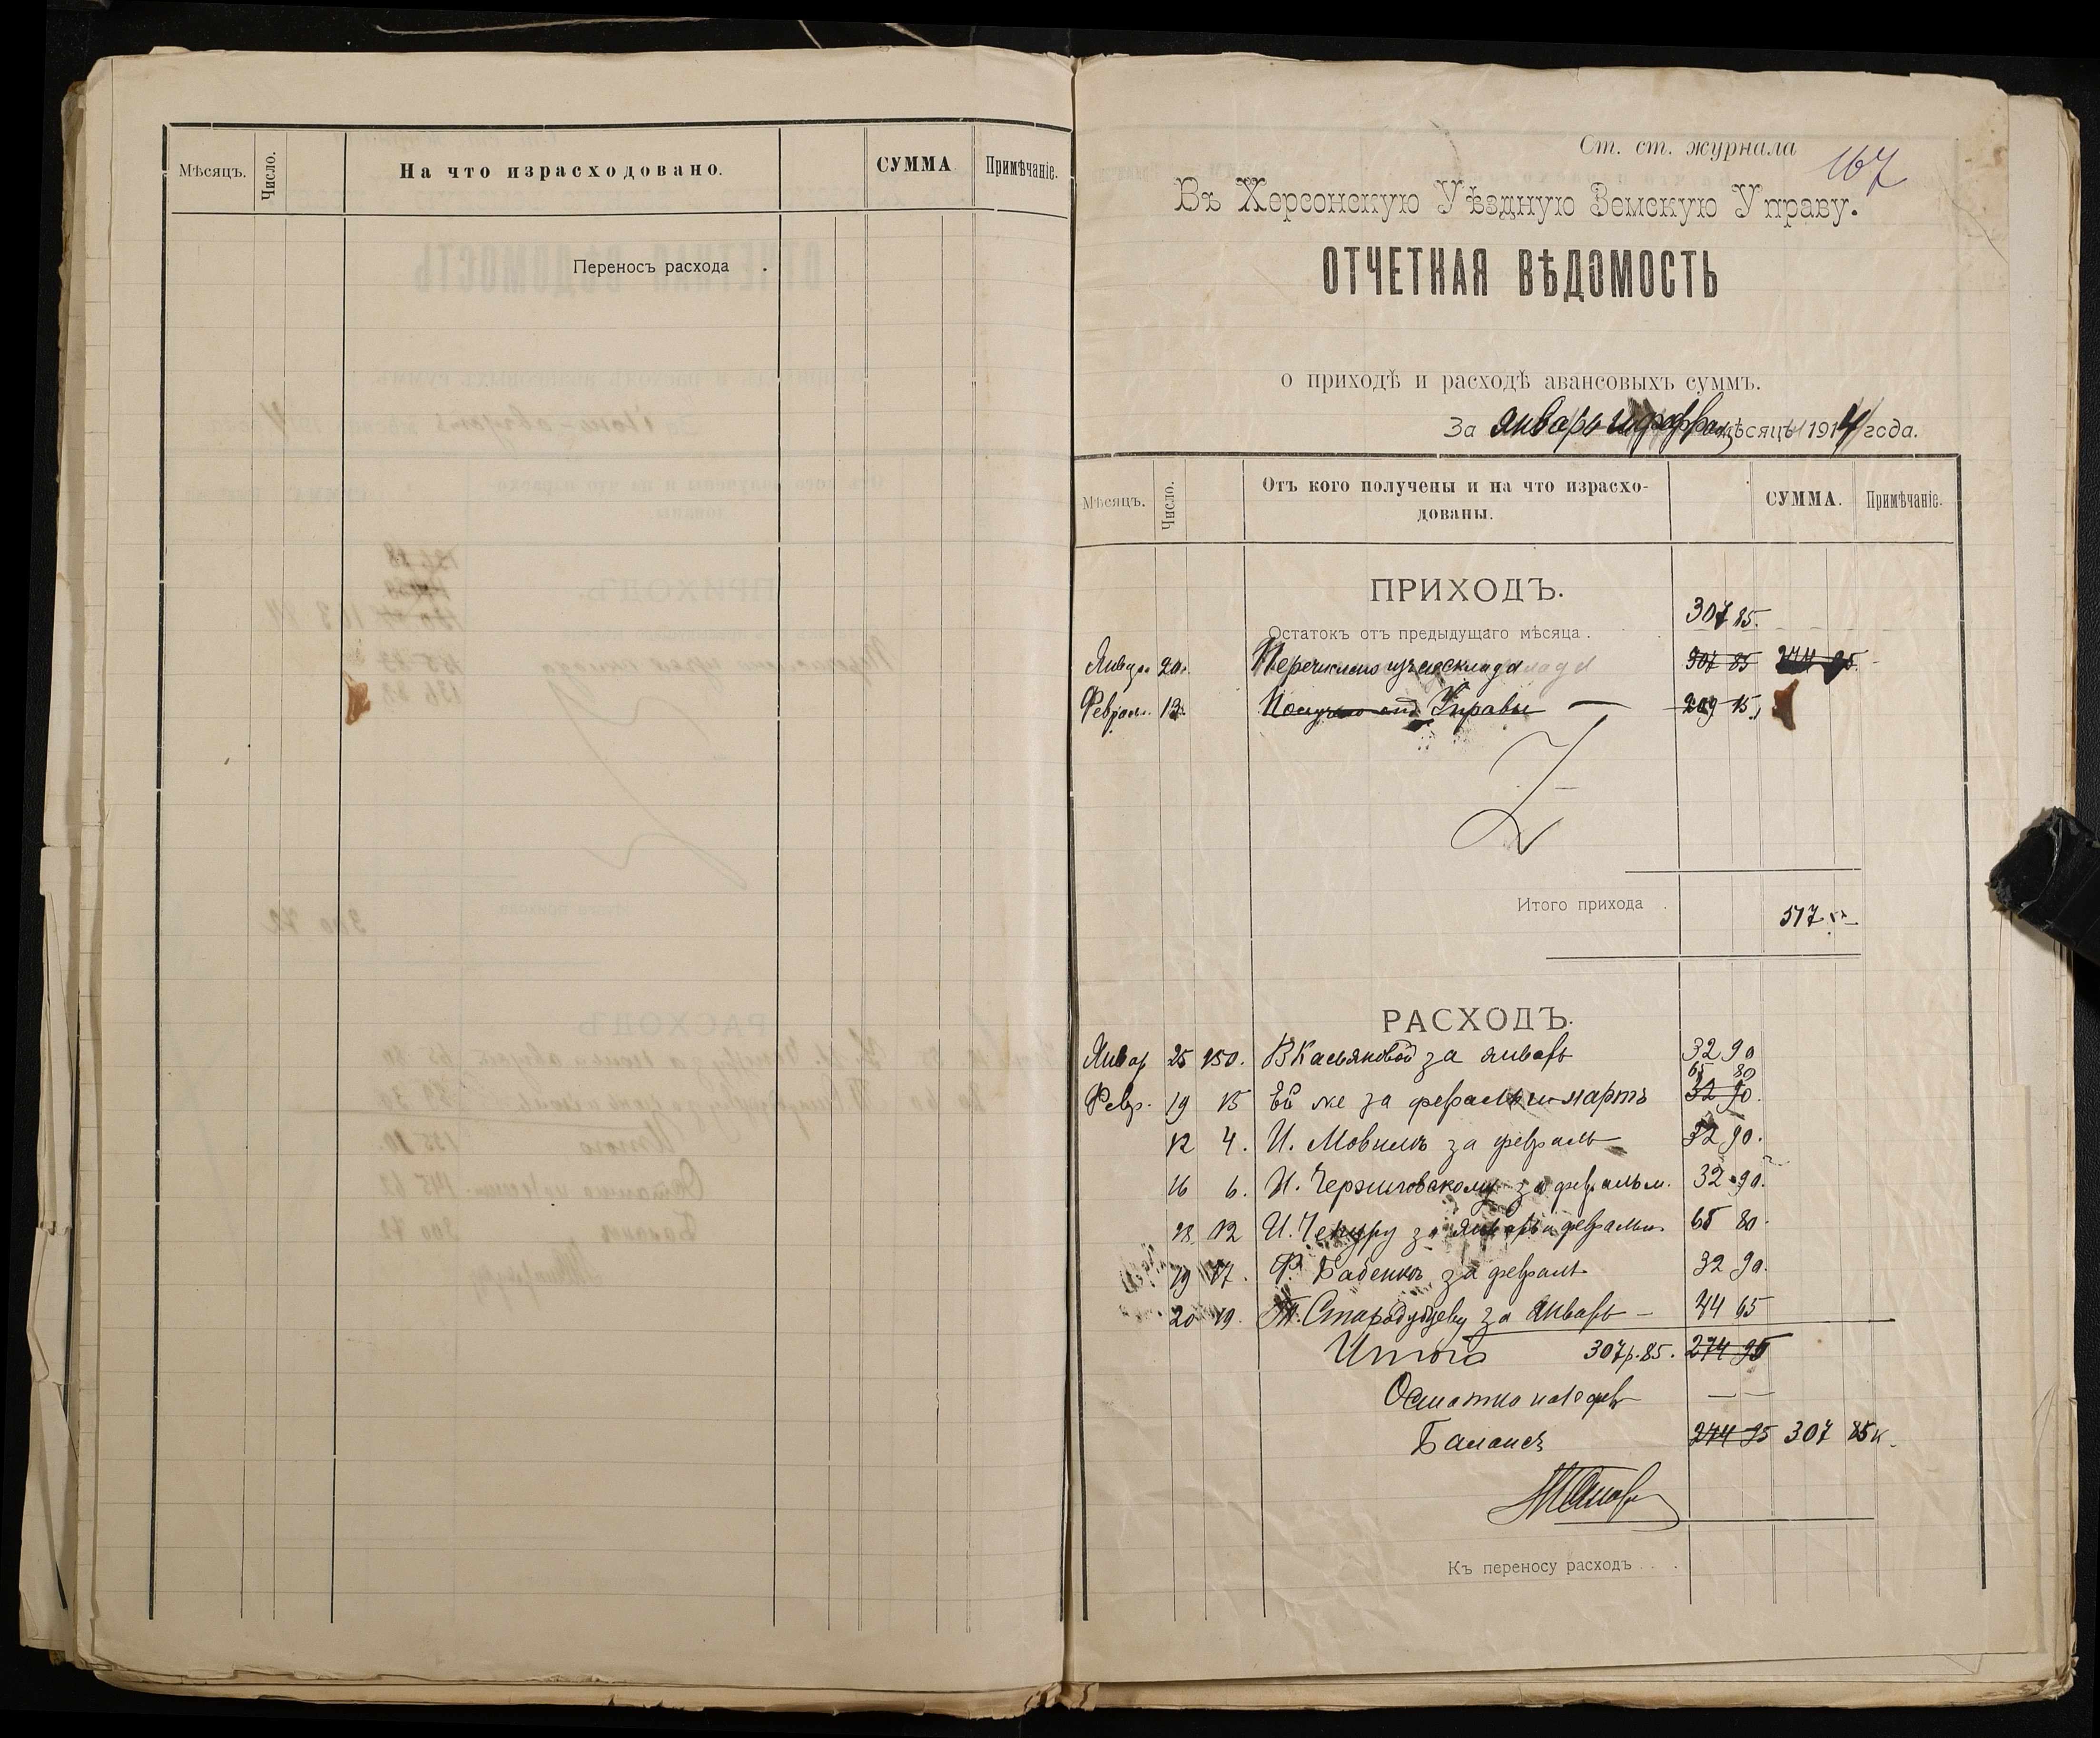 Мѣсяцъ. Число. На что израсходовано. СУММА Примѣчаніе.
Переносъ расхода .
Ст. ст. журнала
167
Въ Херсонскую Уѣздную Земскую Управу.
ОТЧЕТНАЯ ВѢДОМОСТЬ
о приходѣ и расходѣ авансовыхъ суммъ.
За январь и мѣсяцы 1914 года.
Мѣсяцъ. Число. Отъ кого получены и на что израсхо-
дованы. СУММА. Примѣчаніе.
ПРИХОДЪ.
307 85.
Остатокъ отъ предыдущаго мѣсяца .
20. Перечислено изъ склада 307 85
13. Получено отъ Управы — 209 15
Итого прихода . 517
РАСХОДЪ.
Январ 25 150. В Касьяновой за январь 32 90
65 80
Февр. 19 15 Ей же за февраль и мартъ 32 90.
12 4. И. Мовилѣ за февраль 32 90.
16 6. И. за февраль 32 90.
18 12 И. Чекуру за январь и февраль 65 80.
19 17. Ф. Бабенкѣ за февраль 32 90.
20 19. Т. Стародубцеву за январь — 44 65
Итого 307р.85. 274 95
Остатка на 1е фев — —
Балансъ 274 95 307 85к.
Къ переносу расходъ . . .